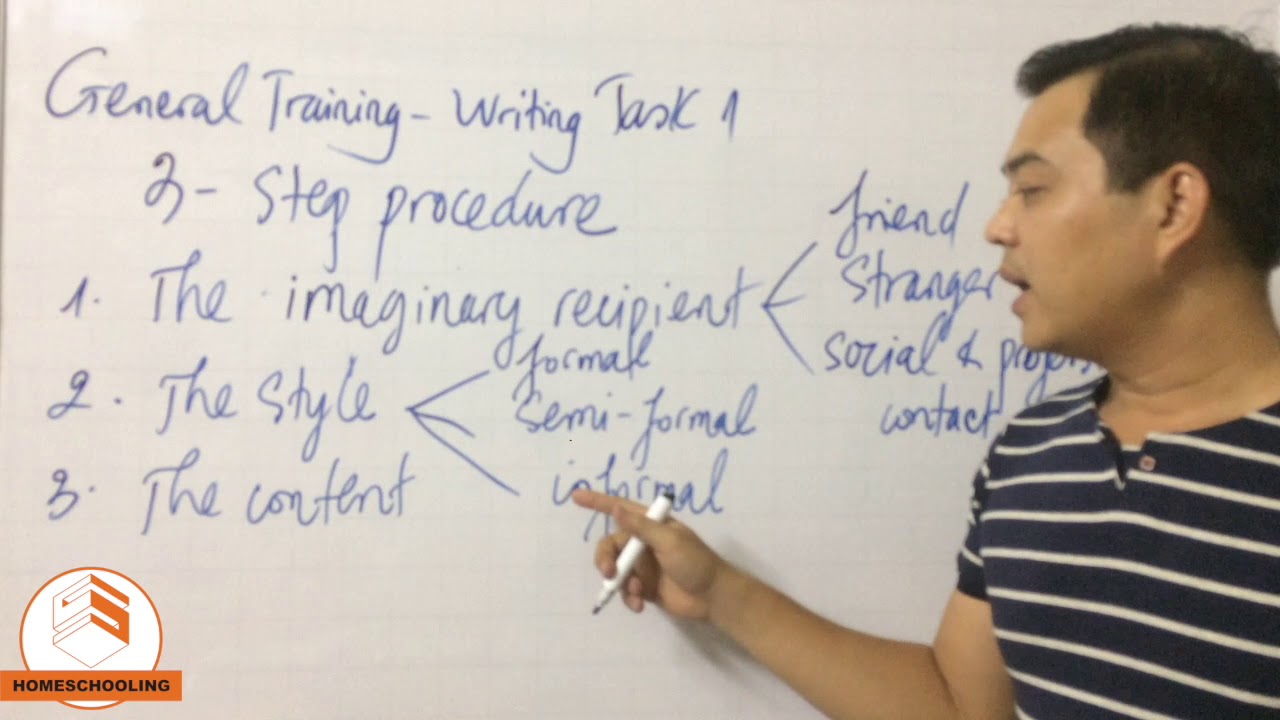 General Training - Writing Task 1
3 - Step procedure
1. The imaginary recipient
friend
stranger
social &
contact
2. The style
formal
semi-formal
informal
3. The content
HOMESCHOOLING